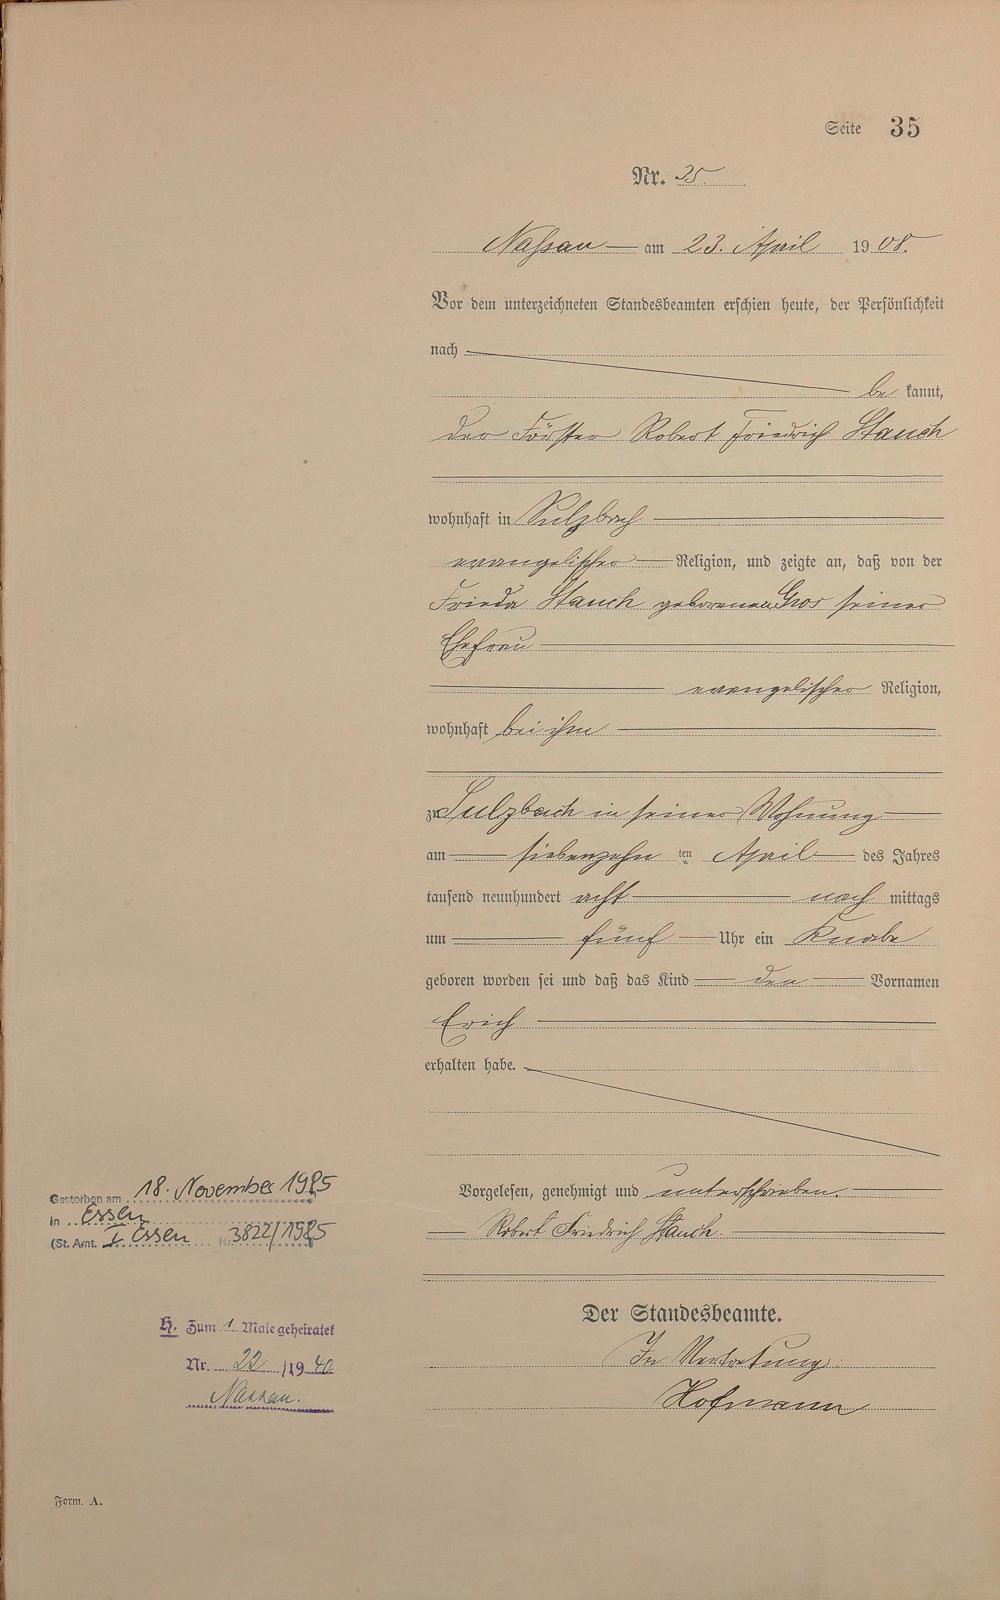 Seite 35
Nr. 25
Naßau am 23. April 1908.
Vor dem unterzeichneten Standesbeamten erschien heute, der Persönlichkeit
nach
be kannt,
der Förster Robert Friedrich Stauch
wohnhaft in Sulzbach
evangelischer Religion, und zeigte an, daß von der
Frieda Stauch geborenen Gros seiner
Ehefrau
evangelischer Religion,
wohnhaft bei ihm
zu Sulzbach in seiner Wohnung
am siebenzehn ten April des Jahres
tausend neunhundert acht nach mittags
um fünf Uhr ein Knabe
geboren worden sei und daß das Kind den Vornamen
Erich
erhalten habe.
Vorgelesen, genehmigt und unterschrieben.
Robert Friedrich Stauch.
Der Standesbeamte.
In Vertretung:
Hofmann
Gestorben am 18. November 1985
in Essen
(St. Amt. I Essen Nr. 3822/1985
H. Zum 1 Male geheiratet
Nr. 22 /1940
Nassau.
Form. A.